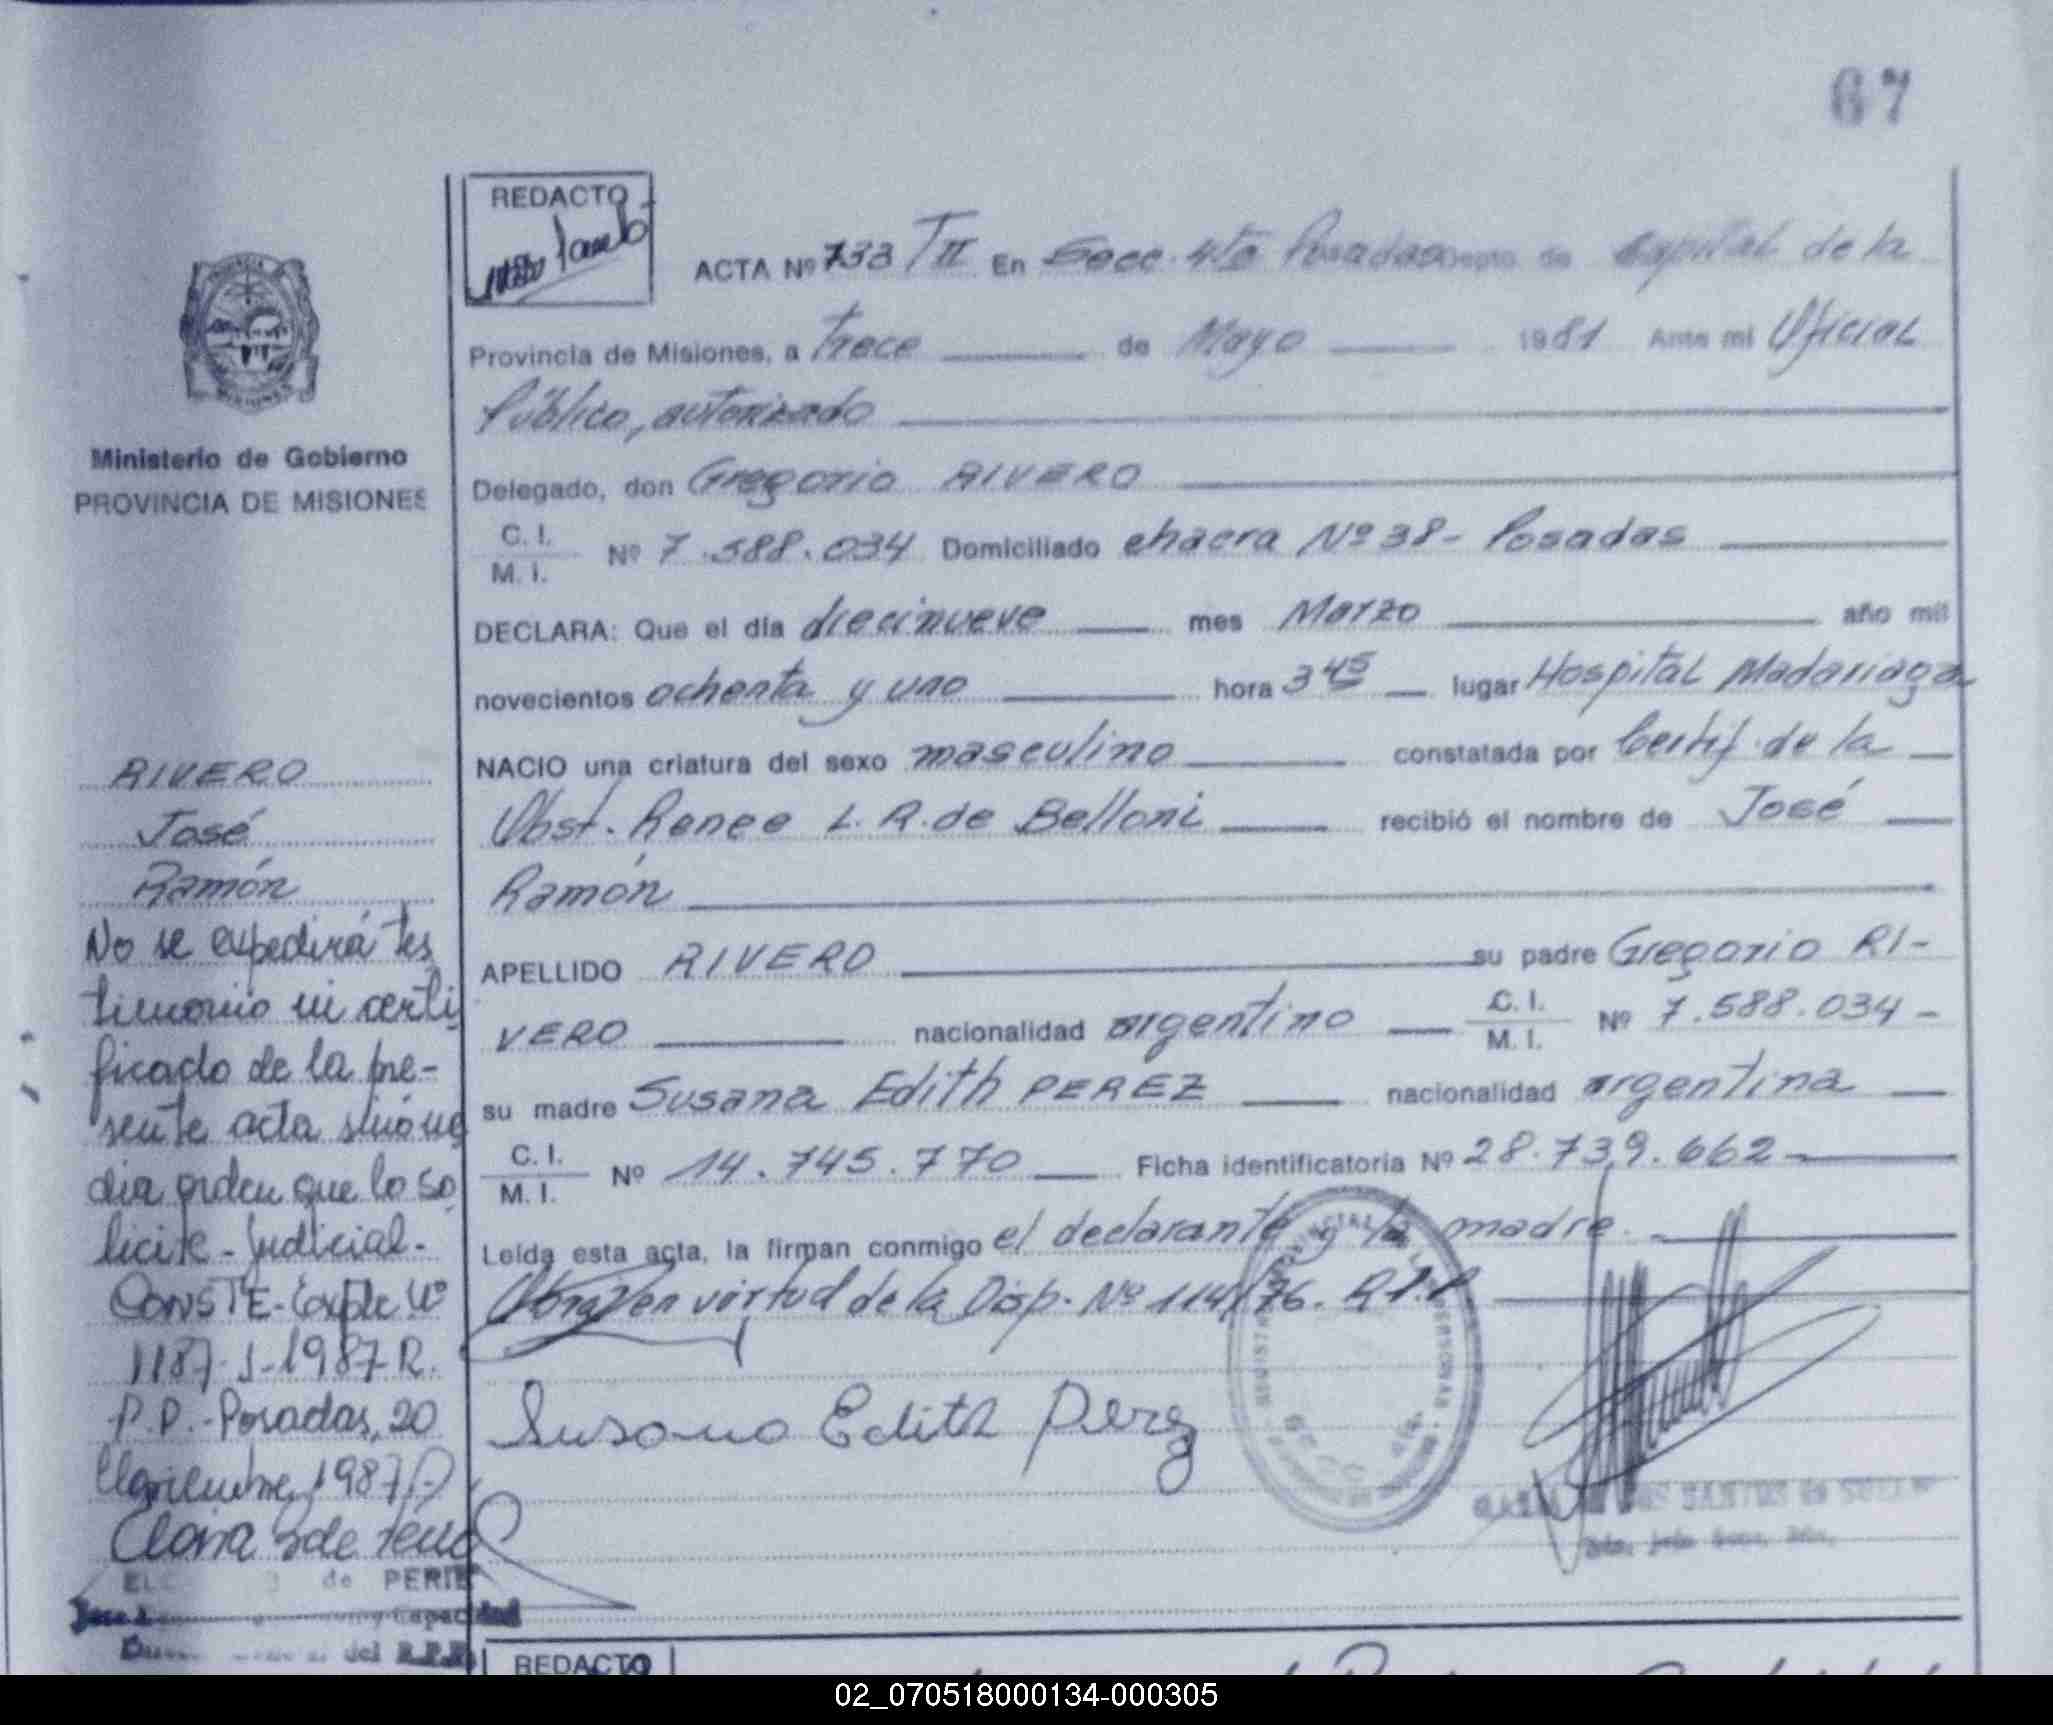 67
REDACTO
ACTA Nº 733 TII En Secc. 4ta Posadas Depto de Capital de la
Provincia de Misiones, a trece de Mayo 1981 Ante mi Oficial
Público, autorizado
Delegado, don Gregorio RIVERO
C. I.
M. I. Nº 7.588.034 Domiciliado chacra Nº 38 - Posadas
DECLARA: Que el día diecinueve mes Marzo año mil
novecientos ochenta y uno hora 3 45 lugar Hospital Madariaga
NACIO una criatura del sexo masculino constatada por Certif. de la
Obst. Renee L. R. de Belloni recibió el nombre de José
Ramón
APELLIDO RIVERO su padre Gregorio RI-
VERO nacionalidad argentino C. I. M. I. Nº 7.588.034 -
su madre Susana Edith PEREZ nacionalidad argentina
C. I.
M. I. Nº 14.745.770 Ficha identificatoria Nº 28.739.662
Leída esta acta, la firman conmigo el declarante y la madre.
Obra en virtud de la Disp. Nº 114/76. R.P.P
Susana Edith Perez
SANTOS de
Ministerio de Gobierno
PROVINCIA DE MISIONES
RIVERO
José
Ramón
No se expedirá tes
timonio ni certi
ficado de la pre-
sente acta sino me
dia orden que lo so
licite - Judicial -
CONSTE - Expte Nº
1187-J-1987-R.
P.P.- Posadas, 20
Noviembre 1987
Clara
de PERIE
Capacidad
del R.P.P.
REDACTO
02_070518000134-000305